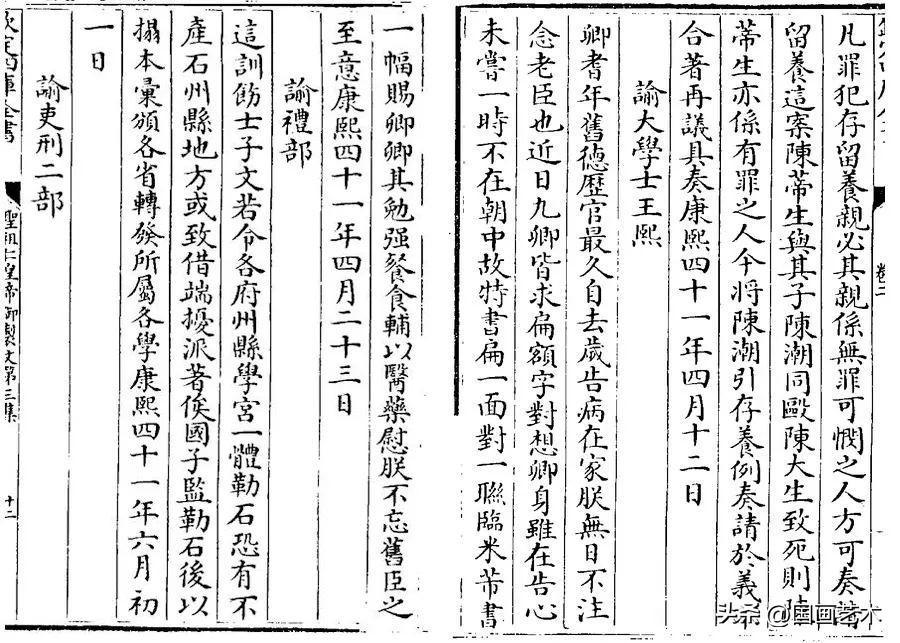 凡罪犯存留養親必其親係無罪可憫之人方可奏請
留養這案陳蒂生與其子陳潮同毆陳大生致死則陳
蒂生亦係有罪之人今將陳潮引存養例奏請於義不
合著再議具奏康熙四十一年四月十二日
諭大學士王熙
卿耆年舊德歷官最久自去歲告病在家朕無日不注
念老臣也近日九卿皆求扁額字對想卿身雖在告心
未嘗一時不在朝中故特書扁一面對一聯臨米芾書
欽定四庫全書
聖祖仁皇帝御製文第三集
十二
一幅賜卿卿其勉强餐食輔以醫藥慰朕不忘舊臣之
至意康熙四十一年四月二十三日
諭禮部
這訓飭士子文若令各府州縣學宮一體勒石恐有不
產石州縣地方或致借端擾派著俟國子監勒石後以
搨本彙頒各省轉發所屬各學康熙四十一年六月初
一日
諭吏刑二部
头条 @国画艺术